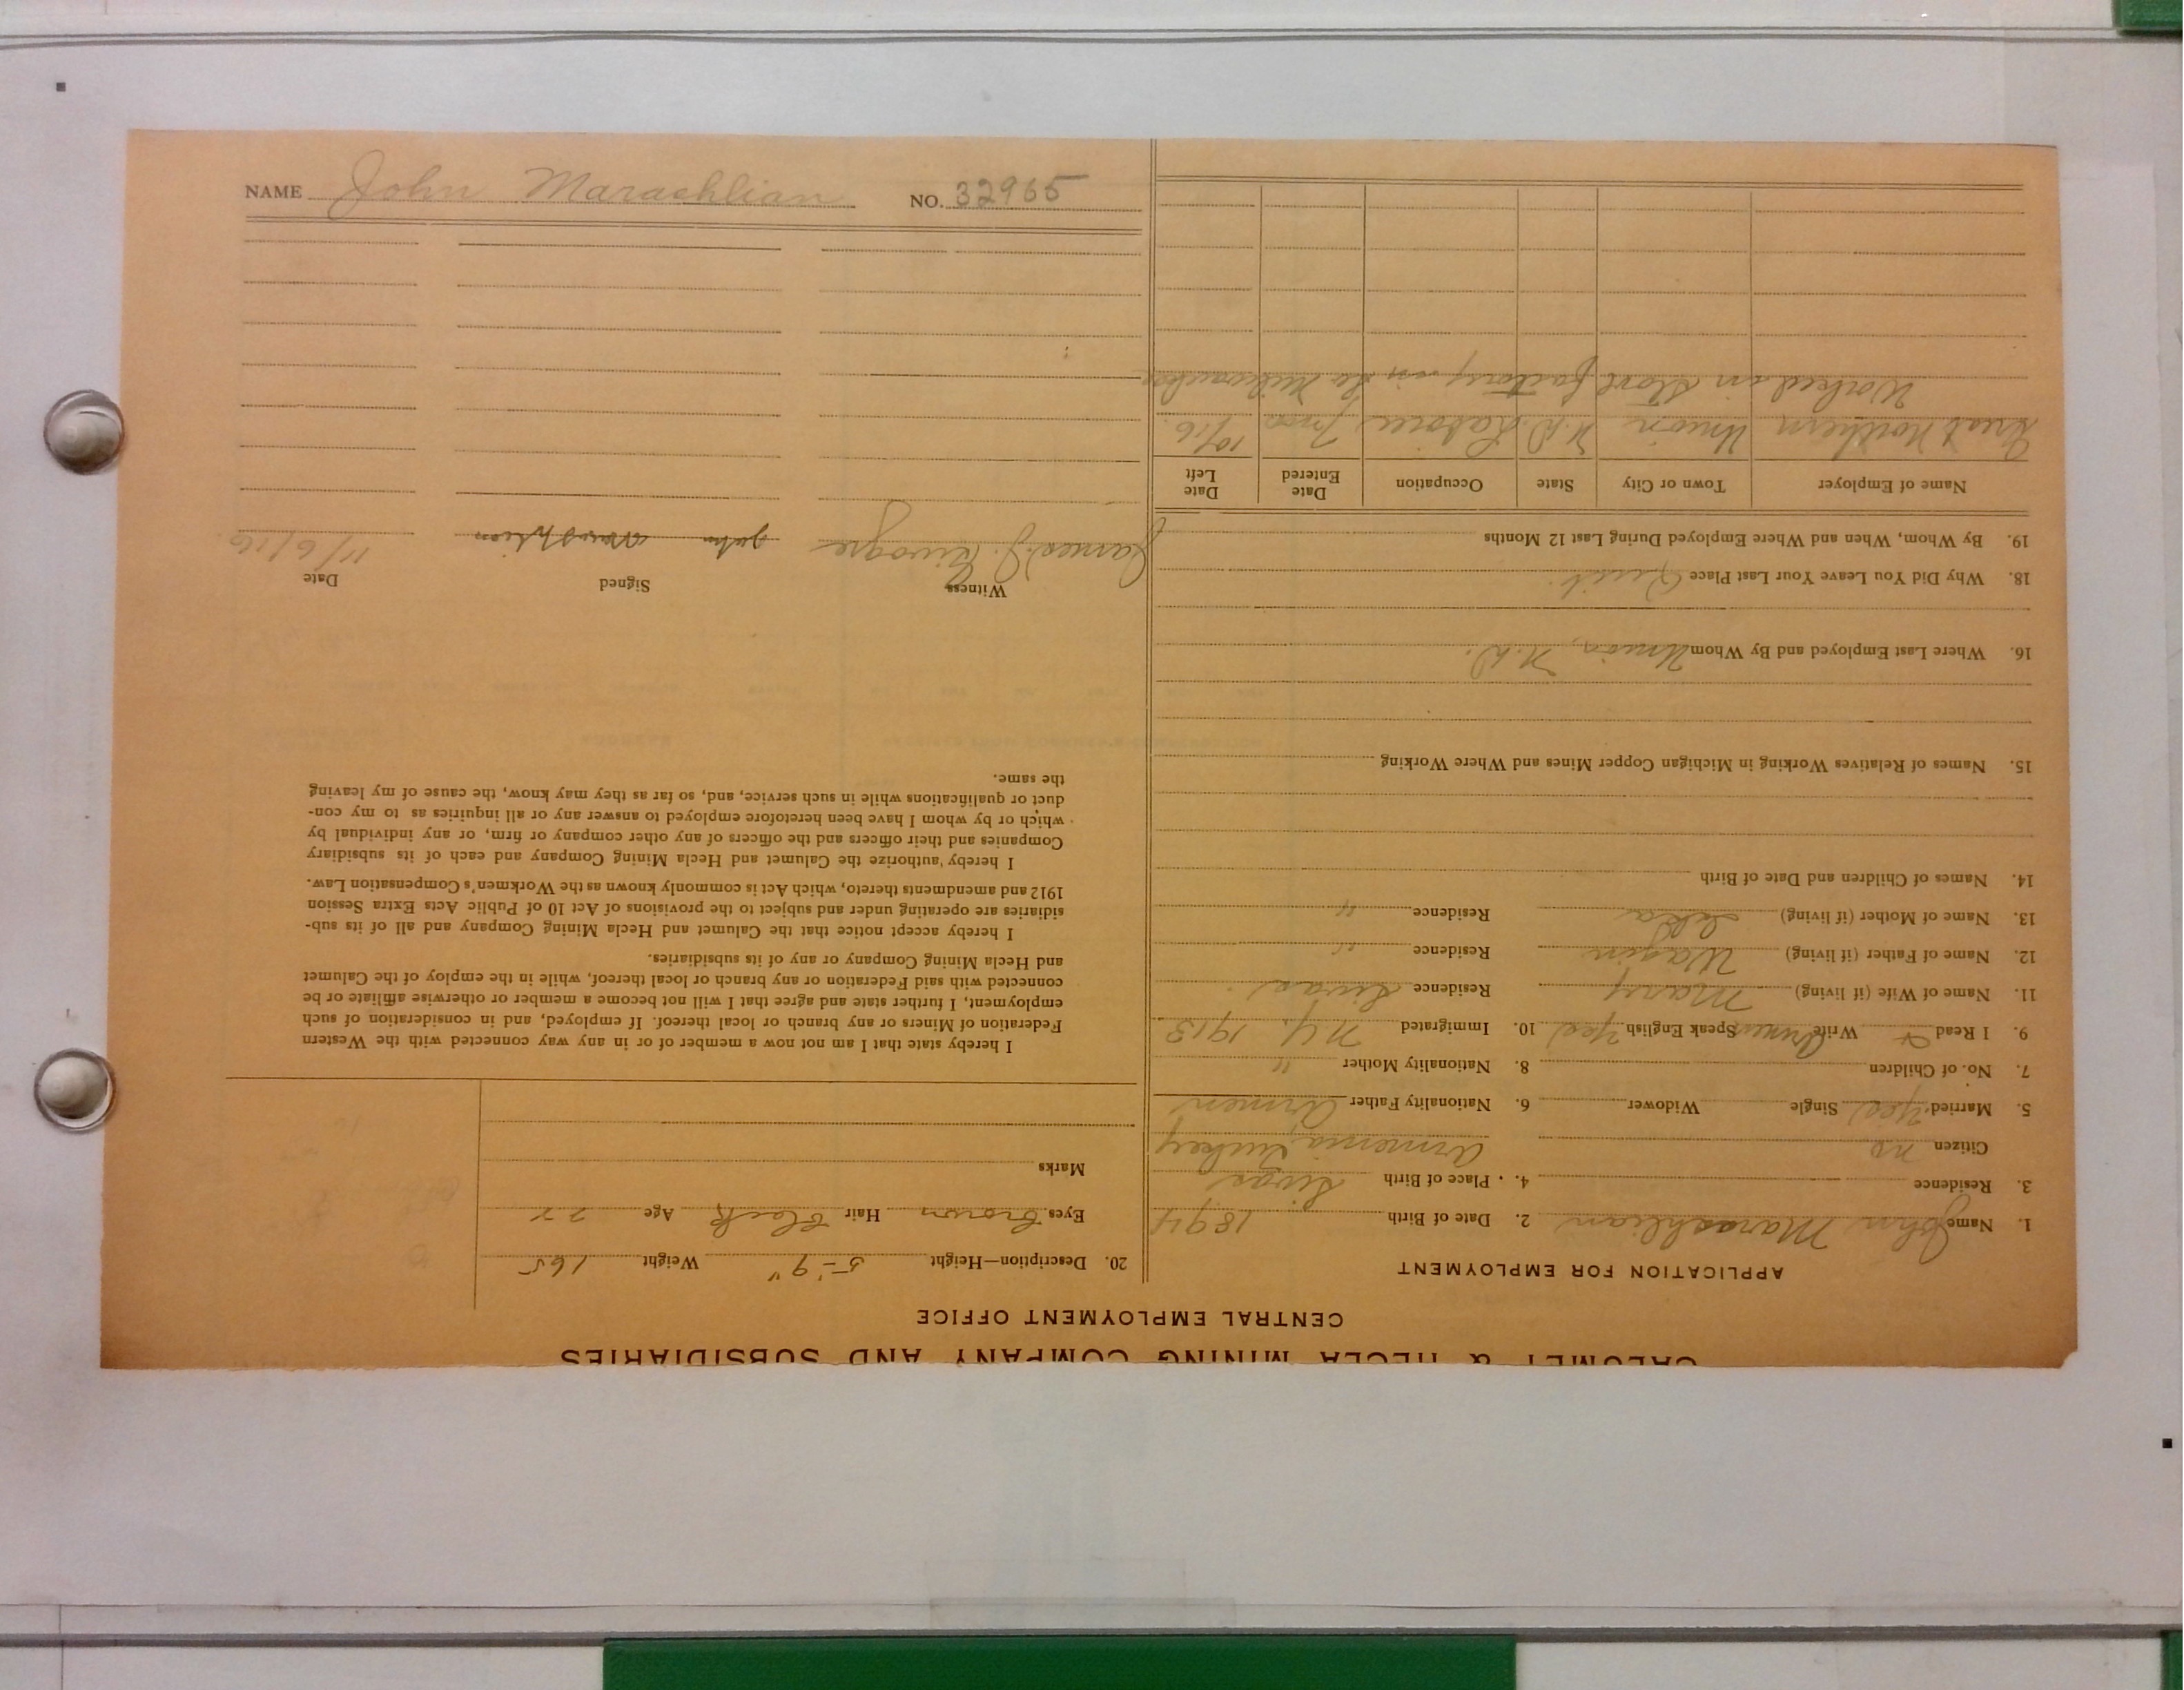 NAME John Marashlian NO. 32965
CALUMET & HECLA MINING COMPANY AND SUBSIDIARIES
CENTRAL EMPLOYMENT OFFICE
APPLICATION FOR EMPLOYMENT
1. Name John Marashlian 2. Date of Birth 1894
3. Residence 4. Place of Birth Sivas
Citizen no Armenia Turkey
5. Married yes Single Widower 6. Nationality Father Armen
7. No. of Children 8. Nationality Mother "
9. I Read & Write Armen Speak English Yes 10. Immigrated N.Y. 1913
11. Name of Wife (if living) Mary Residence Sivas
12. Name of Father (if living) Residence "
13. Name of Mother (if living) Residence "
14. Names of Children and Date of Birth
15. Names of Relatives Working in Michigan Copper Mines and Where Working
16. Where Last Employed and By Whom Union, N.D.
18. Why Did You Leave Your Last Place Quit.
19. By Whom, When and Where Employed During Last 12 Months
Name of Employer Town or City State Occupation Date Entered Date Left
Great Northern Union N.D. Laborer 7 mos 10/16
Worked in stove factory in So Milwaukee
20. Description—Height 5'-9" Weight 165
Eyes Brown Hair Black Age 22
Marks
I hereby state that I am not now a member of or in any way connected with the Western
Federation of Miners or any branch or local thereof. If employed, and in consideration of such
employment, I further state and agree that I will not become a member or otherwise affiliate or be
connected with said Federation or any branch or local thereof, while in the employ of the Calumet
and Hecla Mining Company or any of its subsidiaries.
I hereby accept notice that the Calumet and Hecla Mining Company and all of its sub-
sidiaries are operating under and subject to the provisions of Act 10 of Public Acts Extra Session
1912 and amendments thereto, which Act is commonly known as the Workmen's Compensation Law.
I hereby authorize the Calumet and Hecla Mining Company and each of its subsidiary
Companies and their officers and the officers of any other company or firm, or any individual by
which or by whom I have been heretofore employed to answer any or all inquiries as to my con-
duct or qualifications while in such service, and, so far as they may know, the cause of my leaving
the same.
Witness Signed Date
James J. John 11/6/16